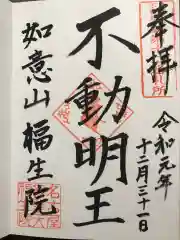 奉拝
令和元年
十二月三十一日
不動明王
如意山福生院